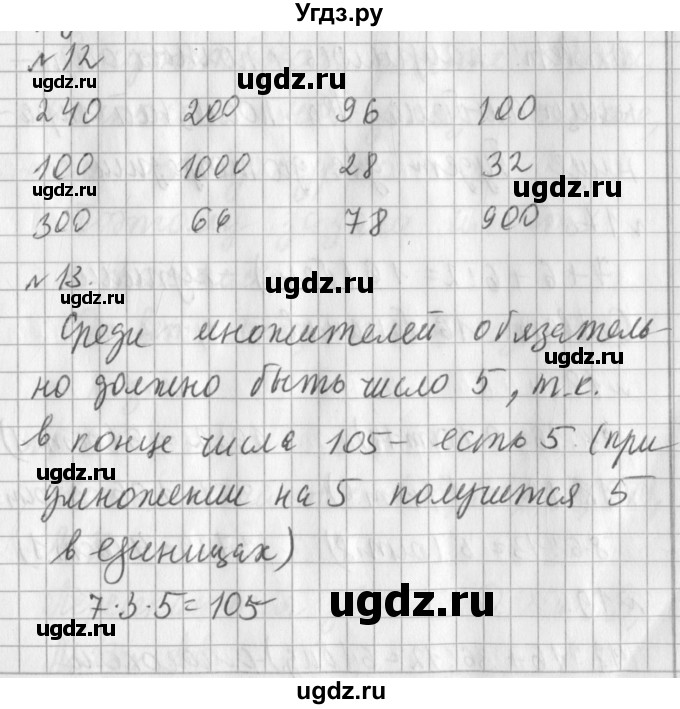 Угдз.ру
№12
ugdz.ru ugdz.ru
240 200 96 100
100 1000 28 32
ugdz.ru ugdz.ru
300 66 78 900
№13.
ugdz.ru ugdz.ru
Среди множителей обязатель-
ugdz.ru
но должно быть число 5, т.к.
в конце числа 105 - есть 5 (при
ugdz.ru
умножении на 5 получится 5
в единицах)
7·3·5=105
ugdz.ru ugdz.ru
ugdz.ru